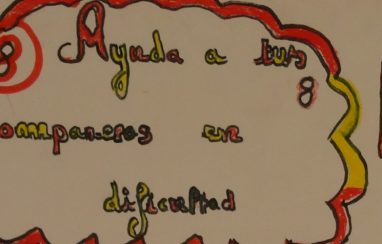 8 Ayuda a tus
8
ompañeros en
dificultad